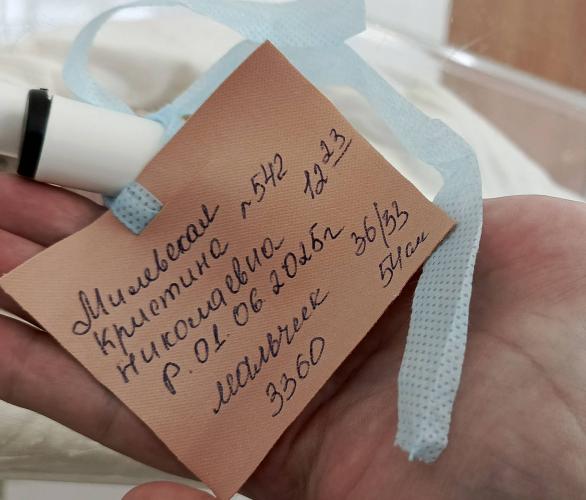 Милевская №542
Кристина 12 23
Николаевна
Р. 01.06.2025г 36/33
мальчик 54 см
3360